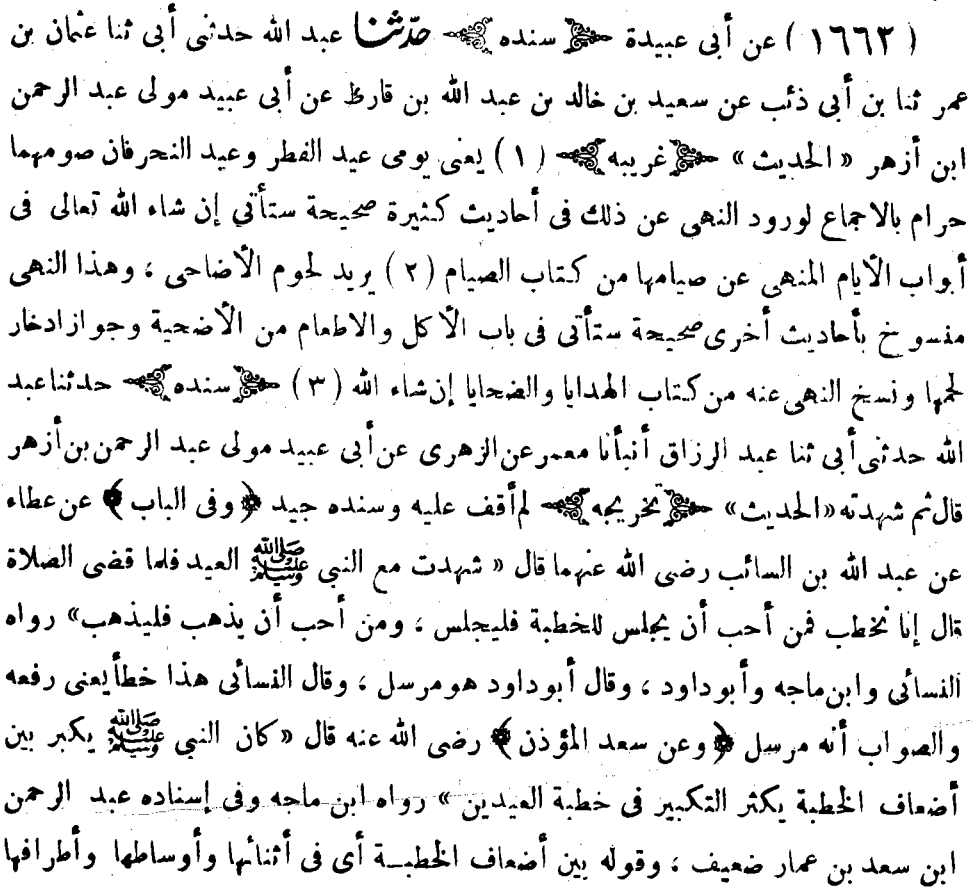 ( ١٦٦٣ ) عن أبى عبيدة ﴿ سنده ﴾ حدّثنا عبد الله حدثنى أبى ثنا عثمان بن
عمر ثنا بن أبى ذئب عن سعيد بن خالد بن عبد الله بن قارظ عن أبى عبيد مولى عبد الرحمن
ابن أزهر « الحديث » ﴿ غريبه ﴾ ( ١ ) يعنى يومى عيد الفطر وعيد النحر فان صومهما
حرام بالاجماع لورود النهى عن ذلك فى أحاديث كثيرة صحيحة ستأتى إن شاء الله تعالى فى
أبواب الأيام المنهى عن صيامها من كتاب الصيام ( ٢ ) يريد لحوم الأضاحى ؛ وهذا النهى
منسوخ بأحاديث أخرى صحيحة ستأتى فى باب الأكل والاطعام من الأضحية وجواز ادخار
لحمها ونسخ النهى عنه من كتاب الهدايا والضحايا إن شاء الله ( ٣ ) ﴿ سنده ﴾ حدثنا عبد
الله حدثنى أبى ثنا عبد الرزاق أنبأنا معمر عن الزهرى عن أبى عبيد مولى عبد الرحمن بن أزهر
قال ثم شهدته « الحديث » ﴿ تخريجه ﴾ لم أقف عليه وسنده جيد ﴿ وفى الباب ﴾ عن عطاء
عن عبد الله بن السائب رضى الله عنهما قال « شهدت مع النبى ﷺ العيد فلما قضى الصلاة
قال إنا نخطب فمن أحب أن يجلس للخطبة فليجلس ؛ ومن أحب أن يذهب فليذهب » رواه
النسائى وابن ماجه وأبو داود ؛ وقال أبو داود هو مرسل ؛ وقال النسائى هذا خطأ يعنى رفعه
والصواب أنه مرسل ﴿ وعن سعد المؤذن ﴾ رضى الله عنه قال « كان النبى ﷺ يكبر بين
أضعاف الخطبة يكثر التكبير فى خطبة العيدين » رواه ابن ماجه وفى إسناده عبد الرحمن
ابن سعد بن عمار ضعيف ؛ وقوله بين أضعاف الخطبة أى فى أثنائها وأوساطها وأطرافها